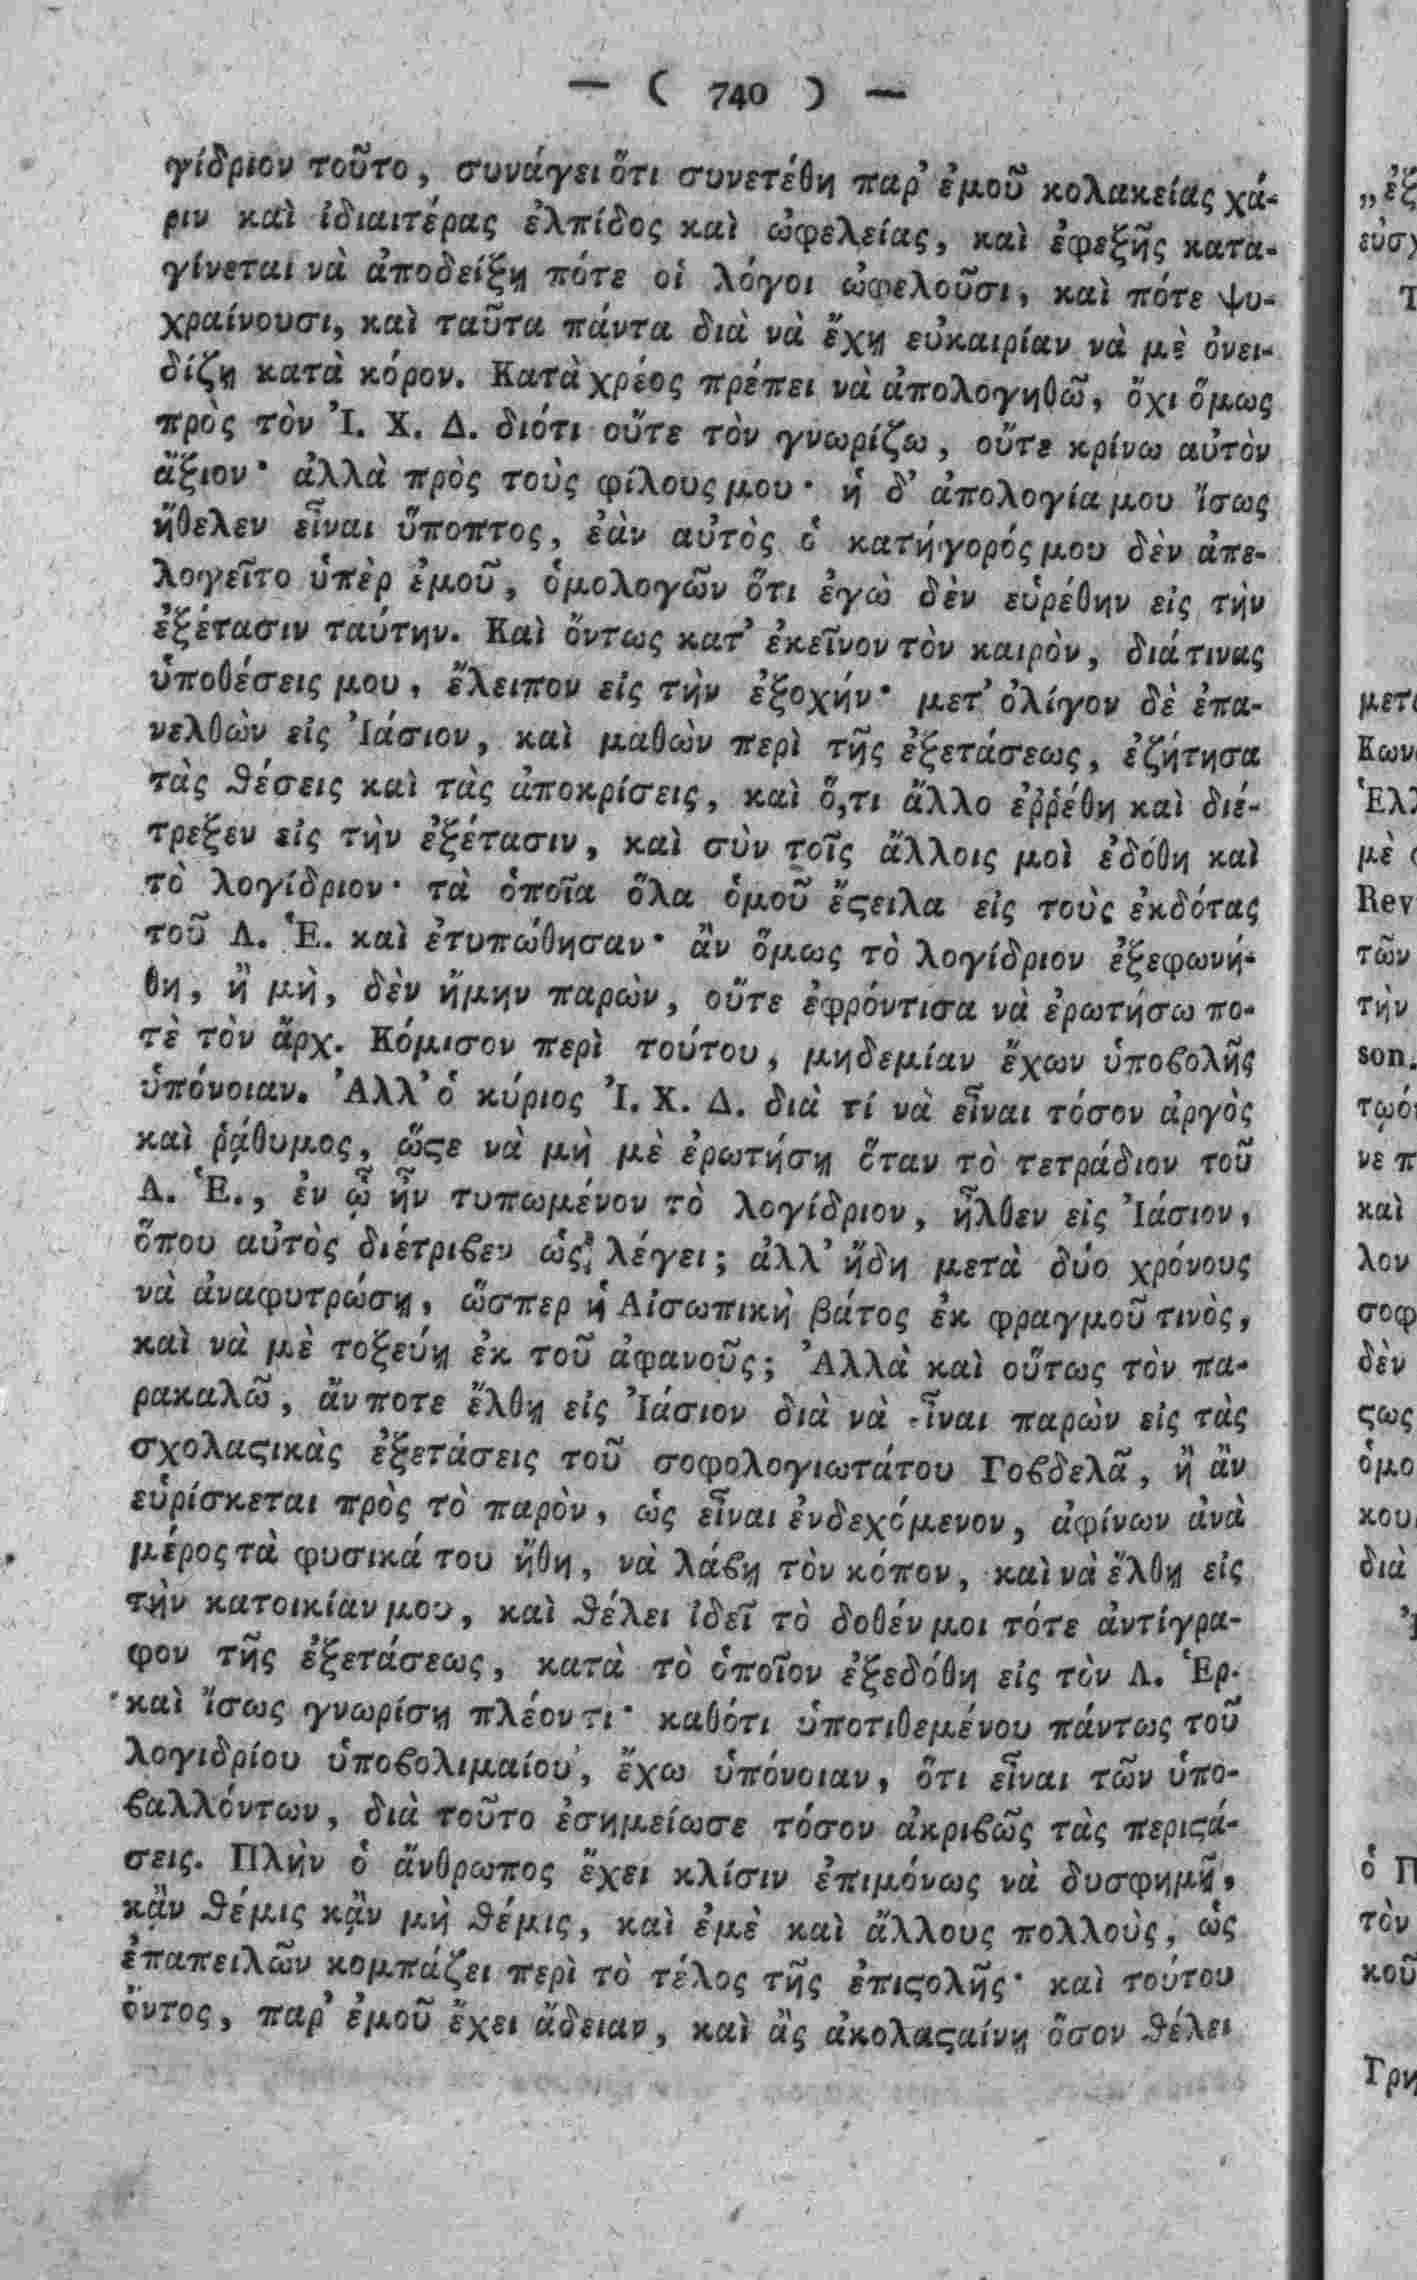 — ( 740 ) —
γίδριον τοῦτο, συνάγει ὅτι συνετέθη παρ' ἐμοῦ κολακείας χά-
ριν καὶ ἰδιαιτέρας ἐλπίδος καὶ ὠφελείας, καὶ ἐφεξῆς κατα-
γίνεται νὰ ἀποδείξῃ πότε οἱ λόγοι ὠφελοῦσι, καὶ πότε ψυ-
χραίνουσι, καὶ ταῦτα πάντα διὰ νὰ ἔχῃ εὐκαιρίαν νὰ μὲ ὀνει-
δίζῃ κατὰ κόρον. Κατὰ χρέος πρέπει νὰ ἀπολογηθῶ, ὄχι ὅμως
πρὸς τὸν Ἰ. Χ. Δ. διότι οὔτε τὸν γνωρίζω, οὔτε κρίνω αὐτὸν
ἄξιον· ἀλλὰ πρὸς τοὺς φίλους μου· ἡ δ' ἀπολογία μου ἴσως
ἤθελεν εἶναι ὕποπτος, ἐὰν αὐτὸς ὁ κατήγορός μου δὲν ἀπε-
λογεῖτο ὑπὲρ ἐμοῦ, ὁμολογῶν ὅτι ἐγὼ δὲν εὑρέθην εἰς τὴν
ἐξέτασιν ταύτην. Καὶ ὄντως κατ' ἐκεῖνον τὸν καιρὸν, διά τινας
ὑποθέσεις μου, ἔλειπον εἰς τὴν ἐξοχήν· μετ' ὀλίγον δὲ ἐπα-
νελθὼν εἰς Ἰάσιον, καὶ μαθὼν περὶ τῆς ἐξετάσεως, ἐζήτησα
τὰς ϑέσεις καὶ τὰς ἀποκρίσεις, καὶ ὅ,τι ἄλλο ἐῤῥέθη καὶ διέ-
τρεξεν εἰς τὴν ἐξέτασιν, καὶ σὺν τοῖς ἄλλοις μοὶ ἐδόθη καὶ
τὸ λογίδριον· τὰ ὁποῖα ὅλα ὁμοῦ ἔϛειλα εἰς τοὺς ἐκδότας
τοῦ Λ. Ἑ. καὶ ἐτυπώθησαν· ἂν ὅμως τὸ λογίδριον ἐξεφωνή-
θη, ἢ μὴ, δὲν ἤμην παρὼν, οὔτε ἐφρόντισα νὰ ἐρωτήσω πο-
τὲ τὸν ἄρχ. Κόμισον περὶ τούτου, μηδεμίαν ἔχων ὑποϐολῆς
ὑπόνοιαν. Ἀλλ' ὁ κύριος Ἰ. Χ. Δ. διὰ τί νὰ εἶναι τόσον ἀργὸς
καὶ ῥᾴθυμος, ὥϛε νὰ μὴ μὲ ἐρωτήσῃ ὅταν τὸ τετράδιον τοῦ
Λ. Ἑ., ἐν ᾧ ἦν τυπωμένον τὸ λογίδριον, ἦλθεν εἰς Ἰάσιον,
ὅπου αὐτὸς διέτριϐεν ὡς λέγει; ἀλλ' ἤδη μετὰ δύο χρόνους
νὰ ἀναφυτρώσῃ, ὥσπερ ἡ Αἰσωπικὴ βάτος ἐκ φραγμοῦ τινὸς,
καὶ νὰ μὲ τοξεύῃ ἐκ τοῦ ἀφανοῦς; Ἀλλὰ καὶ οὕτως τὸν πα-
ρακαλῶ, ἄν ποτε ἔλθῃ εἰς Ἰάσιον διὰ νὰ εἶναι παρὼν εἰς τὰς
σχολαϛικὰς ἐξετάσεις τοῦ σοφολογιωτάτου Γοϐδελᾶ, ἢ ἂν
εὑρίσκεται πρὸς τὸ παρὸν, ὡς εἶναι ἐνδεχόμενον, ἀφίνων ἀνὰ
μέρος τὰ φυσικά του ἤθη, νὰ λάϐῃ τὸν κόπον, καὶ νὰ ἔλθῃ εἰς
τὴν κατοικίαν μου, καὶ ϑέλει ἰδεῖ τὸ δοθέν μοι τότε ἀντίγρα-
φον τῆς ἐξετάσεως, κατὰ τὸ ὁποῖον ἐξεδόθη εἰς τὸν Λ. Ἑρ.
καὶ ἴσως γνωρίσῃ πλέον τι· καθότι ὑποτιθεμένου πάντως τοῦ
λογιδρίου ὑποϐολιμαίου, ἔχω ὑπόνοιαν, ὅτι εἶναι τῶν ὑπο-
ϐαλλόντων, διὰ τοῦτο ἐσημείωσε τόσον ἀκριϐῶς τὰς περιϛά-
σεις. Πλὴν ὁ ἄνθρωπος ἔχει κλίσιν ἐπιμόνως νὰ δυσφημῇ,
κᾂν ϑέμις κᾂν μὴ ϑέμις, καὶ ἐμὲ καὶ ἄλλους πολλοὺς, ὡς
ἐπαπειλῶν κομπάζει περὶ τὸ τέλος τῆς ἐπιϛολῆς· καὶ τούτου
ὄντος, παρ' ἐμοῦ ἔχει ἄδειαν, καὶ ἂς ἀκολαϛαίνῃ ὅσον ϑέλει